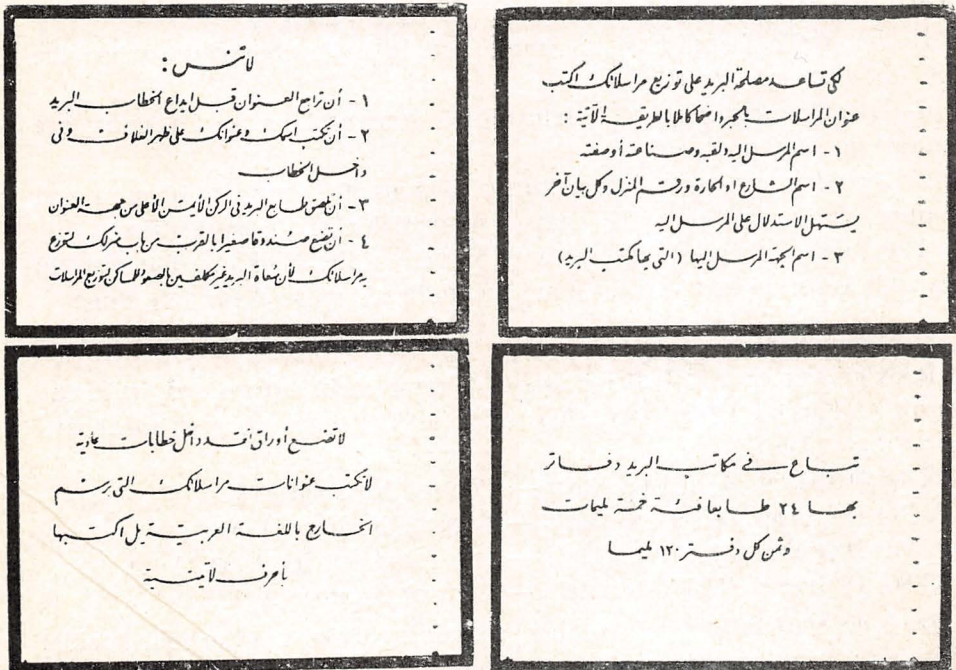 لكى تساعد مصلحة البريد على توزيع مراسلاتك اكتب
عنوان المراسلات بالحبر واضحا كاملا بالطريقة الآتية :
١ - اسم المرسل اليه ولقبه وصناعته أو صفته
٢ - اسم الشارع او الحارة ورقم المنزل وكل بيان آخر
يسهل الاستدلال على المرسل اليه
٣ - اسم الجهة المرسل اليها (التى بها مكتب البريد)
لا تنس :
١ - أن تراجع العنوان قبل ايداع الخطاب البريد
٢ - أن تكتب اسمك وعنوانك على ظهر الغلاف وفى
داخل الخطاب
٣ - أن تلصق طابع البريد فى الركن الأيمن الأعلى من جهة العنوان
٤ - أن تضع صندوقا صغيرا بالقرب من باب منزلك لتوزع
به مراسلاتك لأن سعاة البريد غير مكلفين بالصعود للمساكن لتوزيع المراسلات
تباع فى مكاتب البريد دفاتر
بها ٢٤ طابعا فئة خمسة مليمات
وثمن كل دفتر ١٢٠ مليما
لا تضع أوراق نقد داخل خطابات عادية
لا تكتب عنوانات مراسلاتك التى برسم
الخارج باللغة العربية بل اكتبها
بأحرف لاتينية